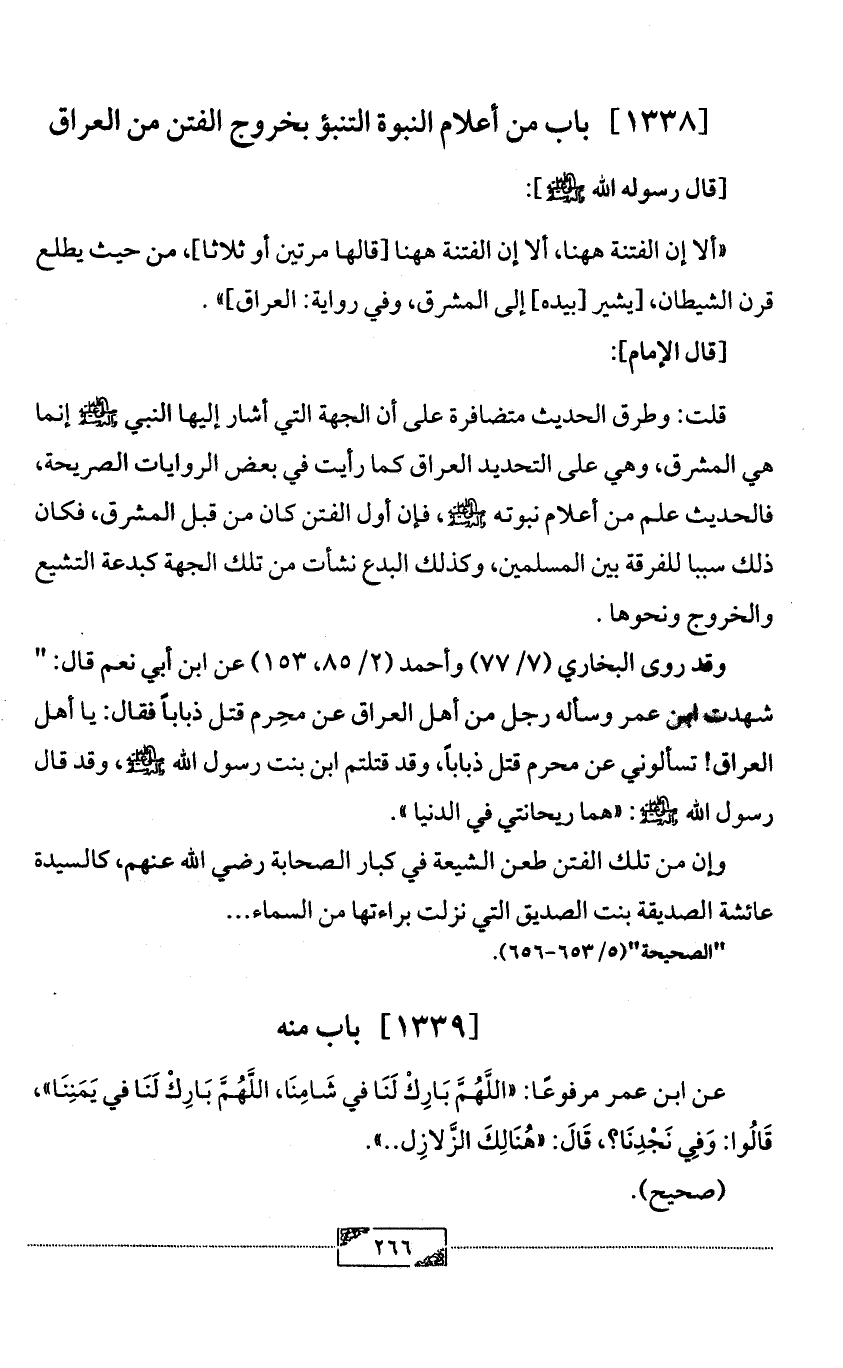 [١٣٣٨] باب من أعلام النبوة التنبؤ بخروج الفتن من العراق
[قال رسوله الله ﷺ]:
«ألا إن الفتنة ههنا، ألا إن الفتنة ههنا [قالها مرتين أو ثلاثا]، من حيث يطلع
قرن الشيطان، [يشير [بيده] إلى المشرق، وفي رواية: العراق]» .
[قال الإمام]:
قلت: وطرق الحديث متضافرة على أن الجهة التي أشار إليها النبي ﷺ إنما
هي المشرق، وهي على التحديد العراق كما رأيت في بعض الروايات الصريحة،
فالحديث علم من أعلام نبوته ﷺ، فإن أول الفتن كان من قبل المشرق، فكان
ذلك سببا للفرقة بين المسلمين، وكذلك البدع نشأت من تلك الجهة كبدعة التشيع
والخروج ونحوها .
وقد روى البخاري (٧/ ٧٧) وأحمد (٢/ ٨٥، ١٥٣) عن ابن أبي نعم قال: "
شهدت ابن عمر وسأله رجل من أهل العراق عن محرِم قتل ذباباً فقال: يا أهل
العراق! تسألوني عن محرم قتل ذباباً، وقد قتلتم ابن بنت رسول الله ﷺ، وقد قال
رسول الله ﷺ: «هما ريحانتي في الدنيا ».
وإن من تلك الفتن طعن الشيعة في كبار الصحابة رضي الله عنهم، كالسيدة
عائشة الصديقة بنت الصديق التي نزلت براءتها من السماء...
"الصحيحة"(٥/ ٦٥٣-٦٥٦).
[١٣٣٩] باب منه
عن ابن عمر مرفوعًا: «اللَّهُمَّ بَارِكْ لَنَا في شَامِنَا، اللَّهُمَّ بَارِكْ لَنَا في يَمَنِنَا»،
قَالُوا: وَفِي نَجْدِنَا؟، قَالَ: «هُنَالِكَ الزَّلازِل..».
(صحيح).
٢٦٦